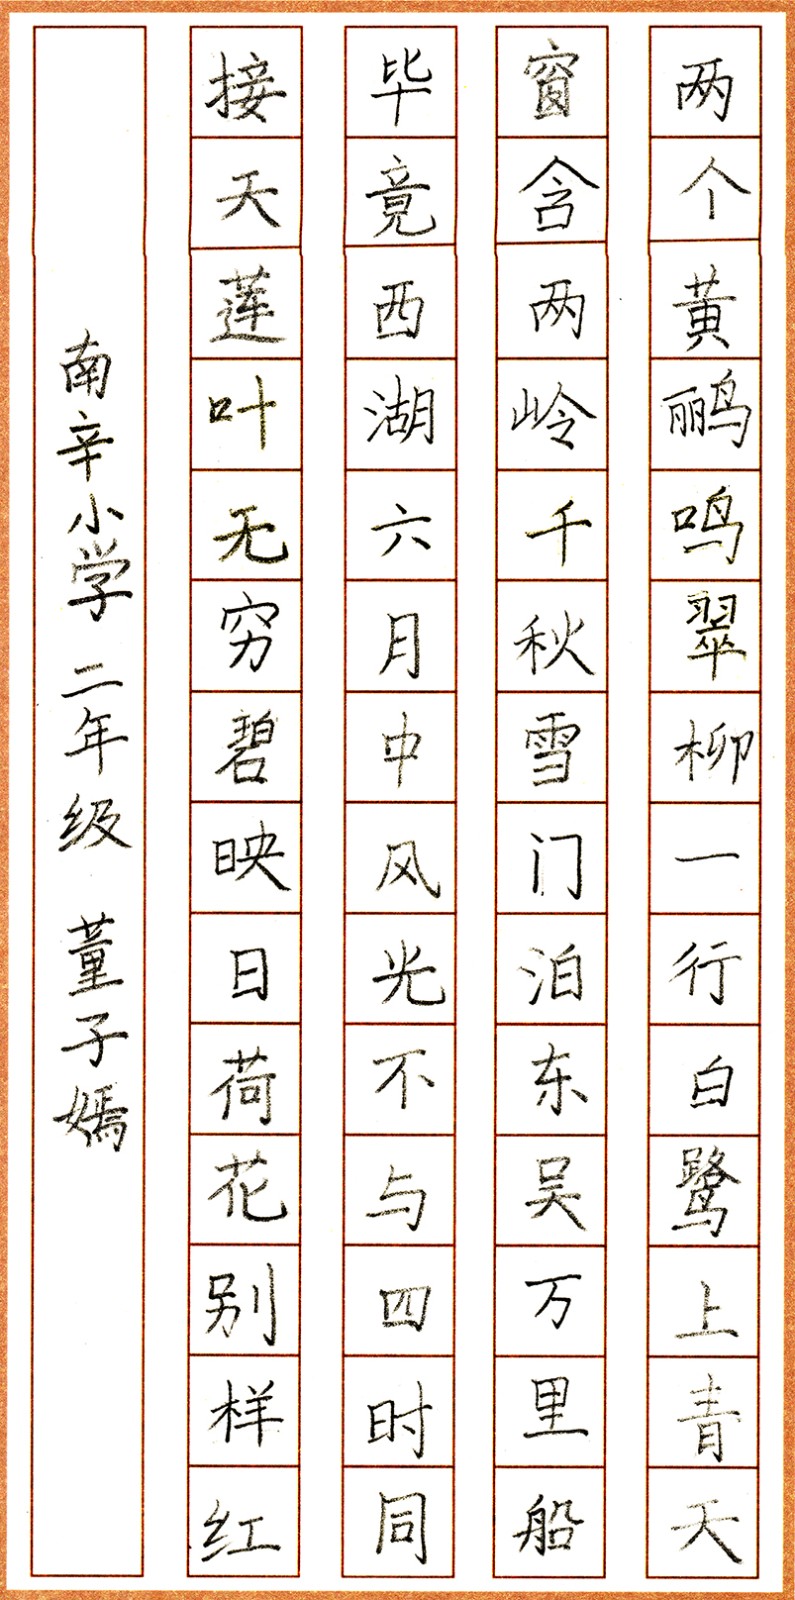 两个黄鹂鸣翠柳一行白鹭上青天
窗含两岭千秋雪门泊东吴万里船
毕竟西湖六月中风光不与四时同
接天莲叶无穷碧映日荷花别样红
南辛小学 二年级 董子嫣